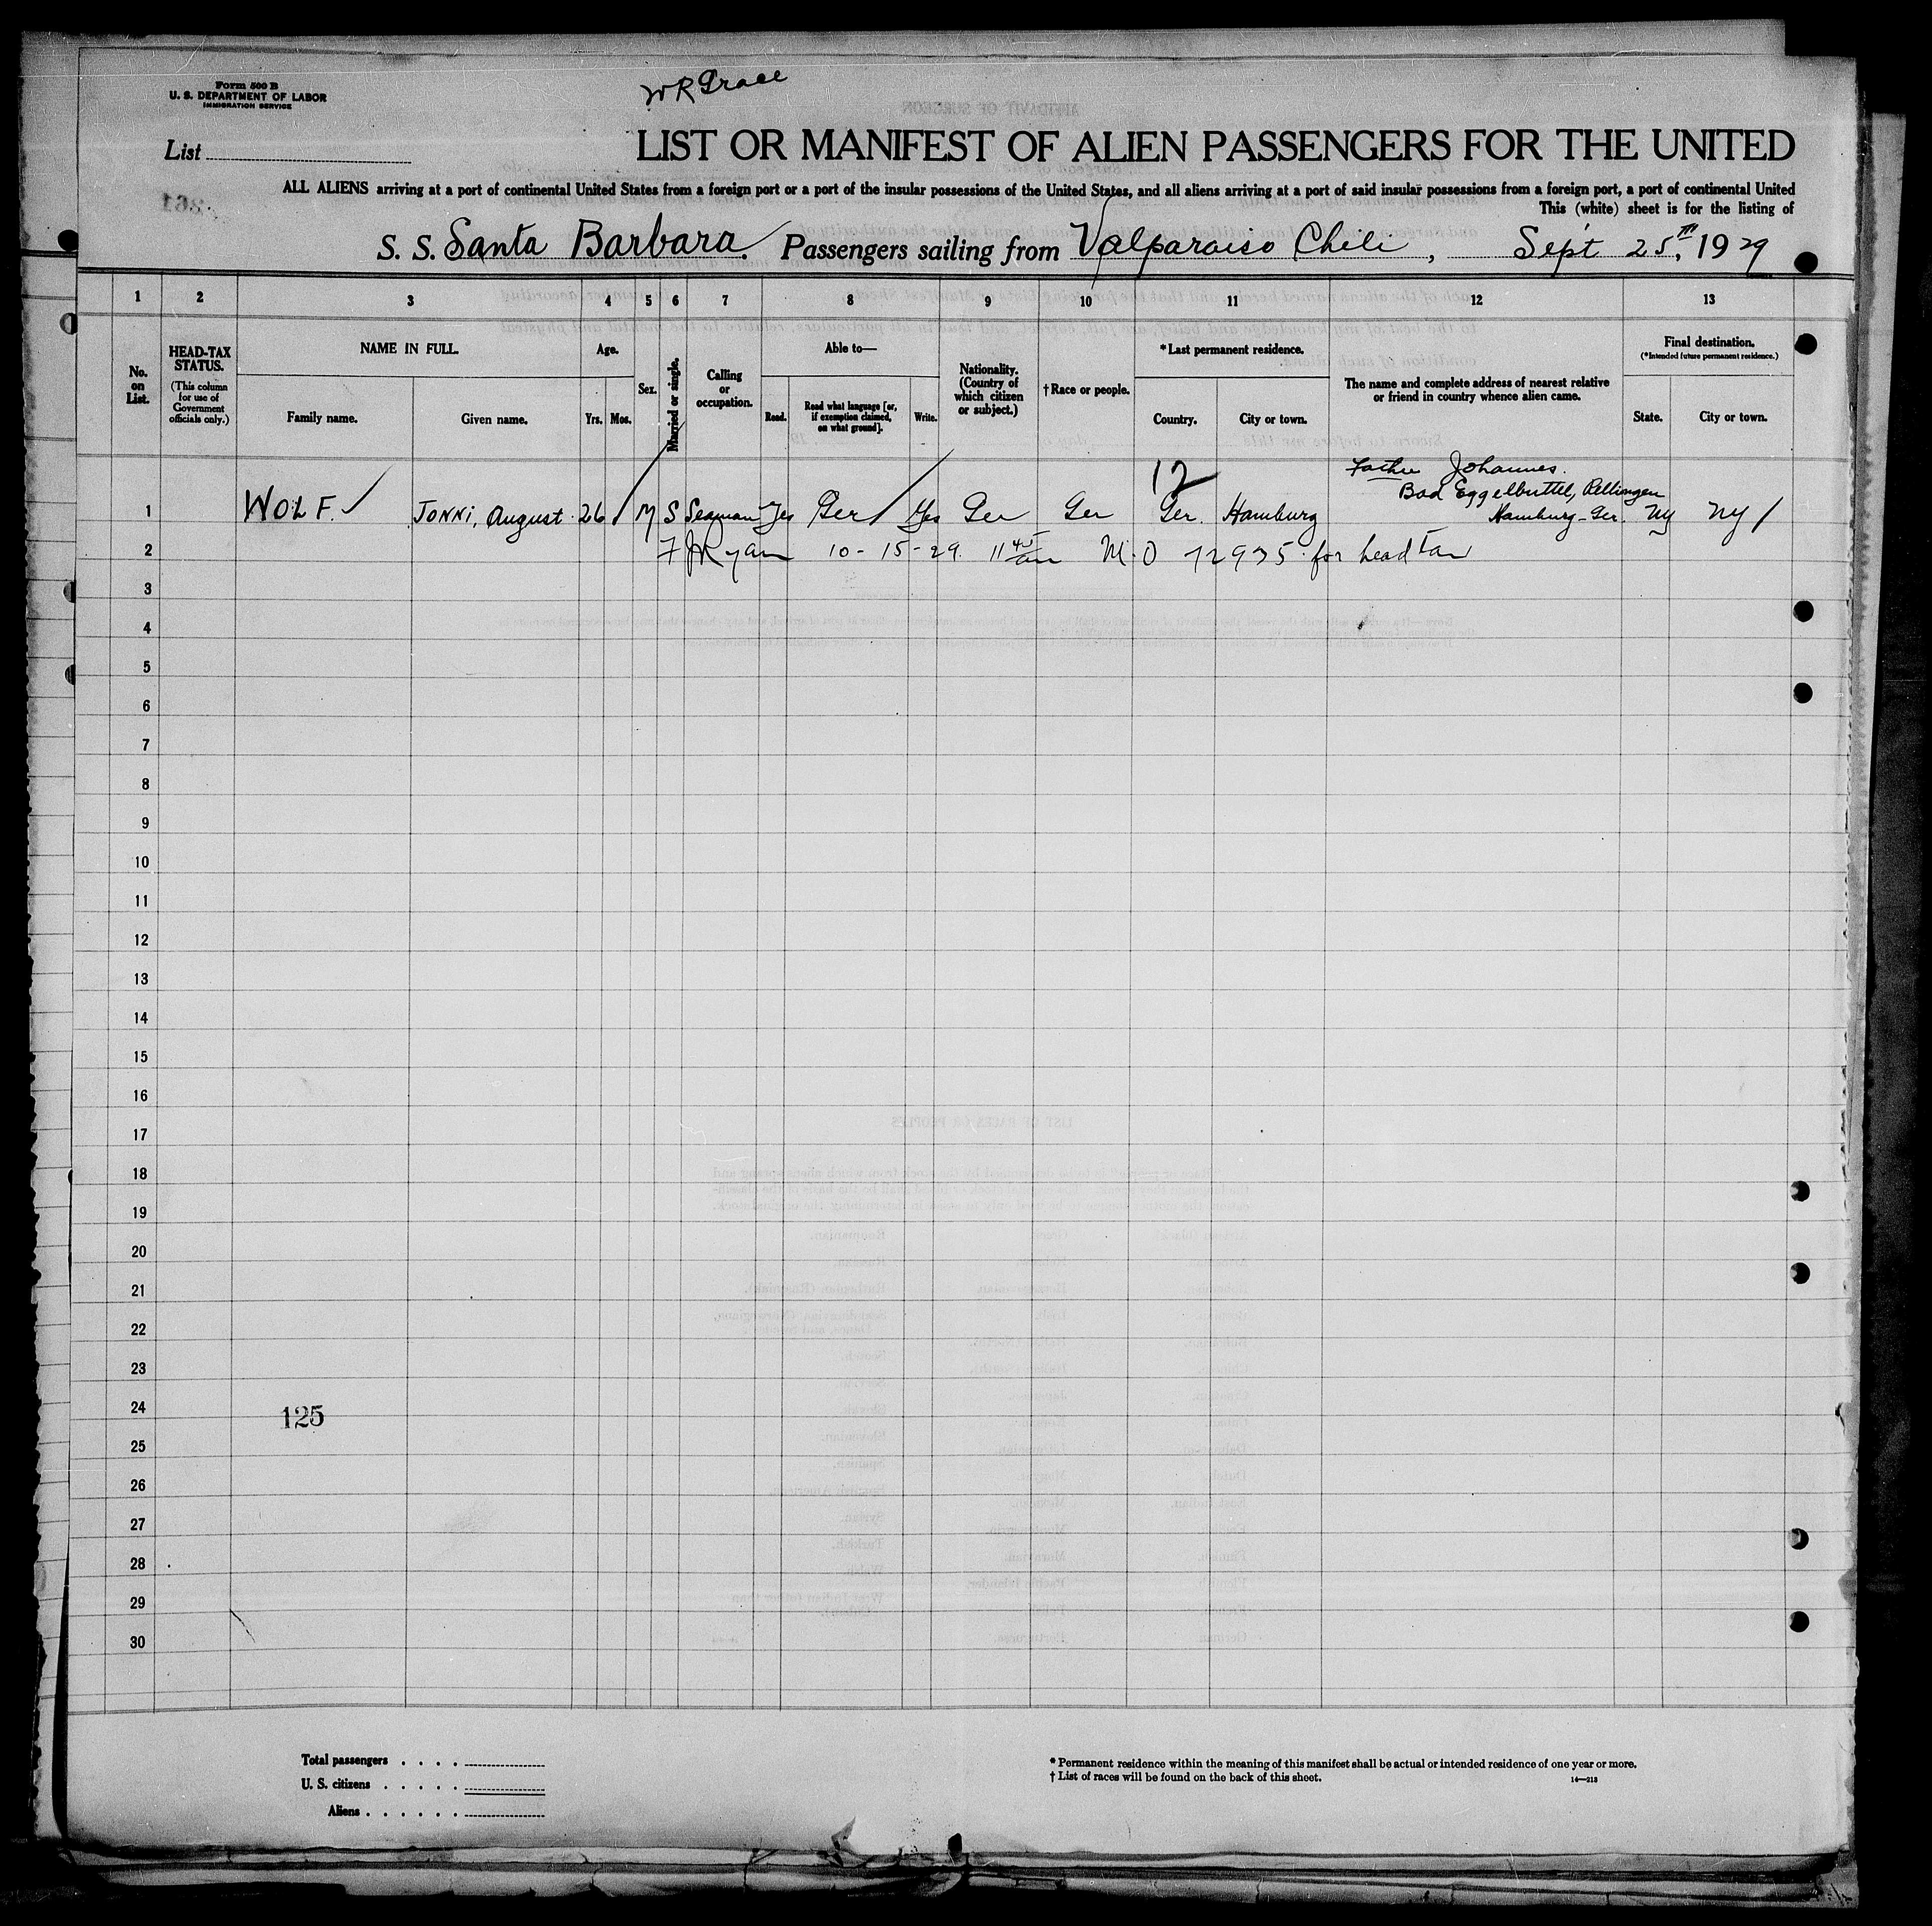 Form 500 B
U. S. DEPARTMENT OF LABOR
IMMIGRATION SERVICE
W R Grace
List
LIST OR MANIFEST OF ALIEN PASSENGERS FOR THE UNITED
ALL ALIENS arriving at a port of continental United States from a foreign port or a port of the insular possessions of the United States, and all aliens arriving at a port of said insular possessions from a foreign port, a port of continental United
This (white) sheet is for the listing of
S. S. Santa Barbara. Passengers sailing from Valparaiso Chili, Sept 25th, 1929
1 2 3 4 5 6 7 8 9 10 11 12 13
No. on List.
HEAD-TAX STATUS.
(This column for use of Government officials only.)
NAME IN FULL.
Family name.
Given name.
Age.
Yrs. Mos.
Sex.
Married or single.
Calling or occupation.
Able to—
Read.
Read what language [or, if exemption claimed, on what ground].
Write.
Nationality. (Country of which citizen or subject.)
† Race or people.
*Last permanent residence.
Country.
City or town.
The name and complete address of nearest relative or friend in country whence alien came.
Final destination.
(*Intended future permanent residence.)
State.
City or town.
12
Father Johannes.
Bad Eggelbuttel, Rellingen
Hamburg-Ger.
1 WOLF. JONNI, August 26 M S Seaman Yes Ger Yes Ger Ger Ger. Hamburg NY NY
2 F J Ryan 10-15-29 11 45 am M.O 72975 for head tax
3
4
5
6
7
8
9
10
11
12
13
14
15
16
17
18
19
20
21
22
23
24
125
25
26
27
28
29
30
Total passengers
U. S. citizens
Aliens
* Permanent residence within the meaning of this manifest shall be actual or intended residence of one year or more.
† List of races will be found on the back of this sheet.
14—213